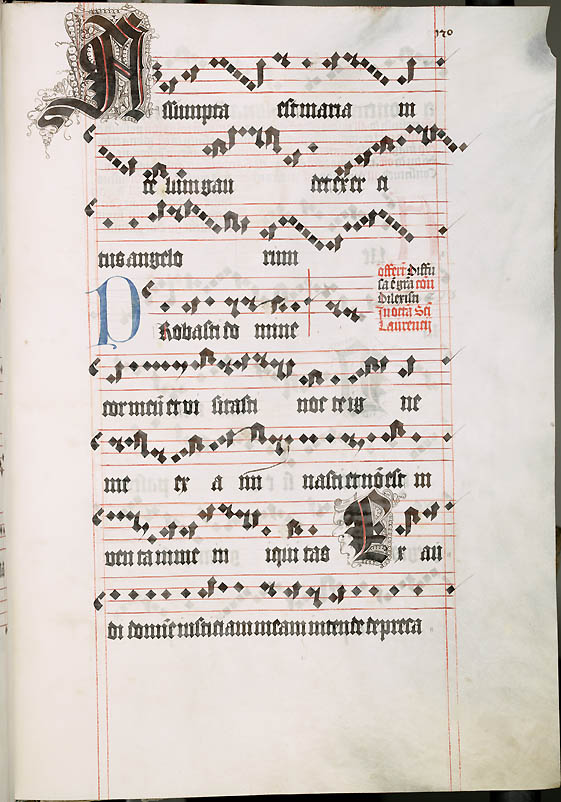 170
Assumpta est maria in
ce lum gau
tus angelo rum
offert Diffu
sa ē grā com
Dilexisti
In octa Sci
Laurencij
PRobasti do mine
cor meū et vi sitasti noc te ig ne
me ex a mi nasti et nō est in
ven ta in me in iqui tas Ex au
di domīe iusticiam meam intende depreca